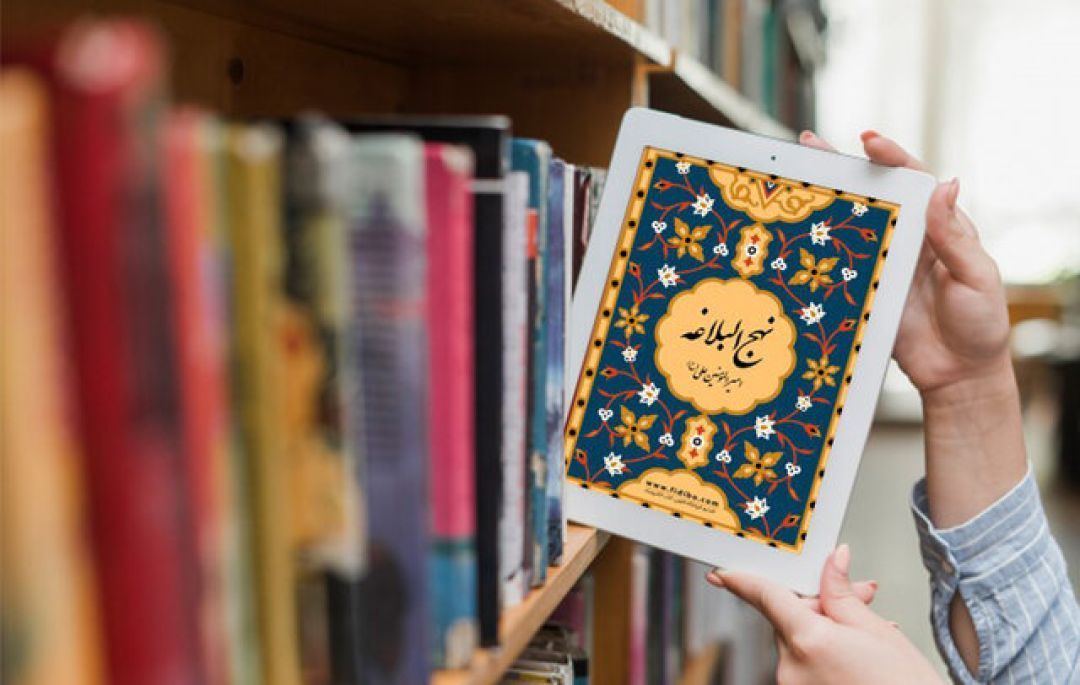 نهج البلاغه
امیرالمؤمنین علی (ع)
www.fidibo.com